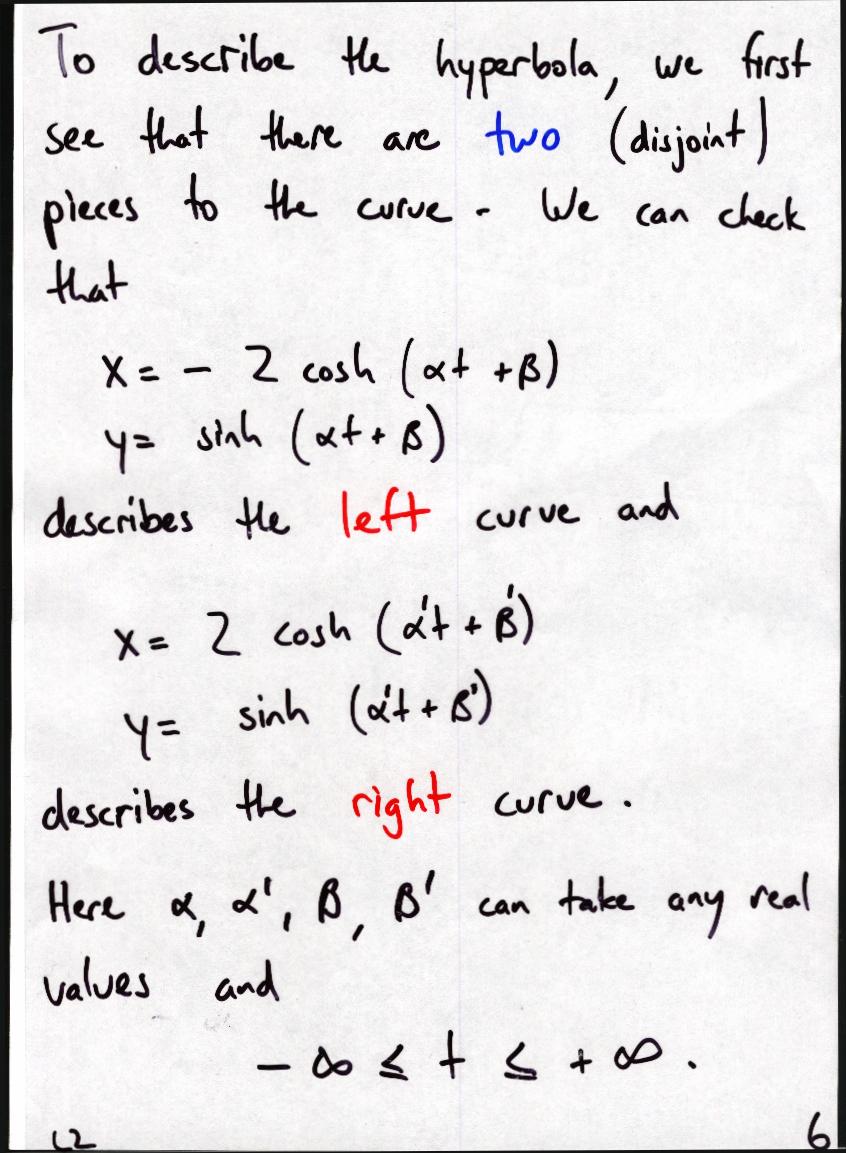 To describe the hyperbola, we first
see that there are two (disjoint)
pieces to the curve. We can check
that
x = - 2 cosh (αt + β)
y = sinh (αt + β)
describes the left curve and
x = 2 cosh (α't + β')
y = sinh (α't + β')
describes the right curve.
Here α, α', β, β' can take any real
values and
- ∞ ≤ t ≤ + ∞.
L2 6